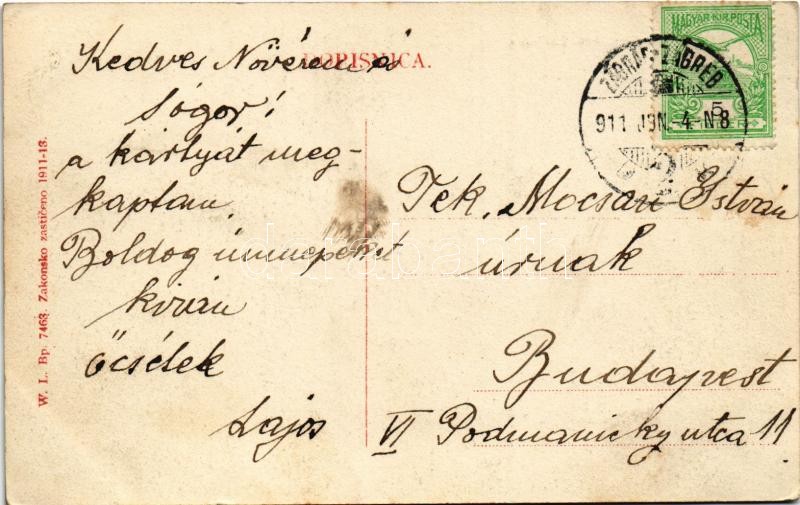 DOPISNICA.
Kedves Nővérem és
Sógor!
a kártyát meg-
kaptam.
Boldog ünnepeket
kiván
őcsétek
Lajos
W. L. Bp. 7463. Zakonsko zastićeno 1911-13.
MAGYAR KIR. POSTA
5
ZÁGRÁB ZAGREB
911 JUN.-4.-N8
Tek. Mocsári István
úrnak
Budapest
VI Podmaniczky utca 11